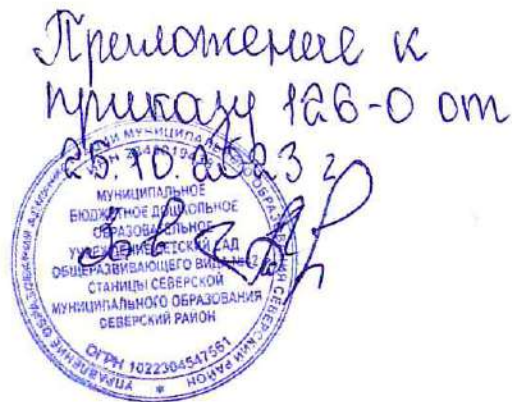 Приложение к
приказу 126-О от
25.10.2023 г
Зав
МУНИЦИПАЛЬНОЕ
БЮДЖЕТНОЕ ДОШКОЛЬНОЕ
ОБРАЗОВАТЕЛЬНОЕ
УЧРЕЖДЕНИЕ ДЕТСКИЙ САД
ОБЩЕРАЗВИВАЮЩЕГО ВИДА
СТАНИЦЫ СЕВЕРСКОЙ
МУНИЦИПАЛЬНОГО ОБРАЗОВАНИЯ
СЕВЕРСКИЙ РАЙОН
ОГРН 1022304547561
УПРАВЛЕНИЕ ОБРАЗОВАНИЯ МУНИЦИПАЛЬНОГО ОБРАЗОВАНИЯ СЕВЕРСКИЙ РАЙОН *